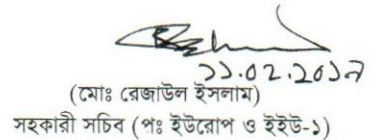 ১১.০২.২০১৭
(মোঃ রেজাউল ইসলাম)
সহকারী সচিব (পঃ ইউরোপ ও ইইউ-১)